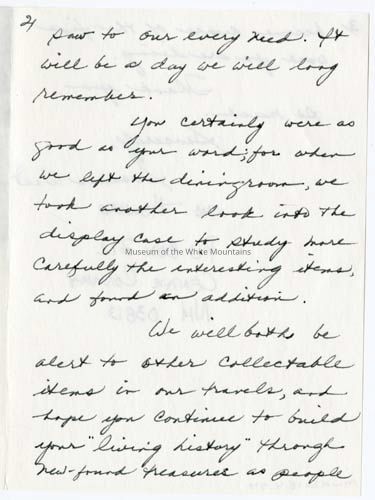 2)
saw to our every need. It
will be a day we will long
remember.
You certainly were as
good as your word, for when
we left the diningroom, we
took another look into the
display case to study more
carefully the interesting items,
and found an addition.
Museum of the White Mountains
We will both be
alert to other collectable
items in our travels, and
hope you continue to build
your "living history" through
new-found treasures as people